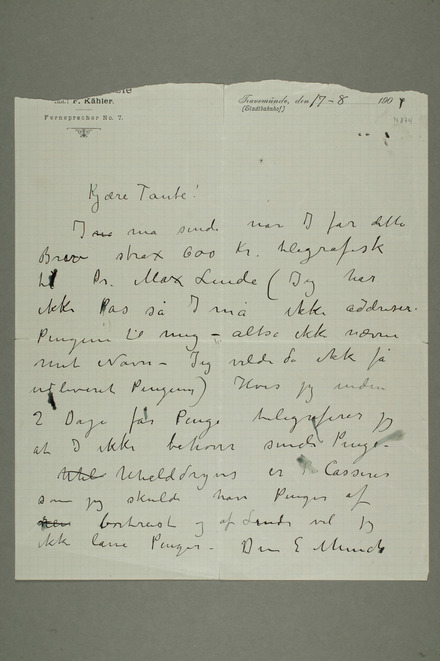 Inh.: F. Kähler.
Fernsprecher No. 7.
Travemünde, den 17-8 190
(Stadtbahnhof)
Kjære Tante!
I må sende når I får dette
Brev strax 600 Kr. telegrafisk
til Dr. Max Linde (Jeg har
ikke Pas så I må ikke addresere
Pengene til mig – altså ikke nævne
mit Navn – Jeg vilde da ikk få
udleveret Pengene) Hvis jeg inden
2 Dage får Penge telegraferer jeg
at I ikke behøver sende Penge
Uheldigvis er Cassirer
som jeg skulde have Penger af
bortreist og af Linde vil jeg
ikk låne Penger – Din E Munch